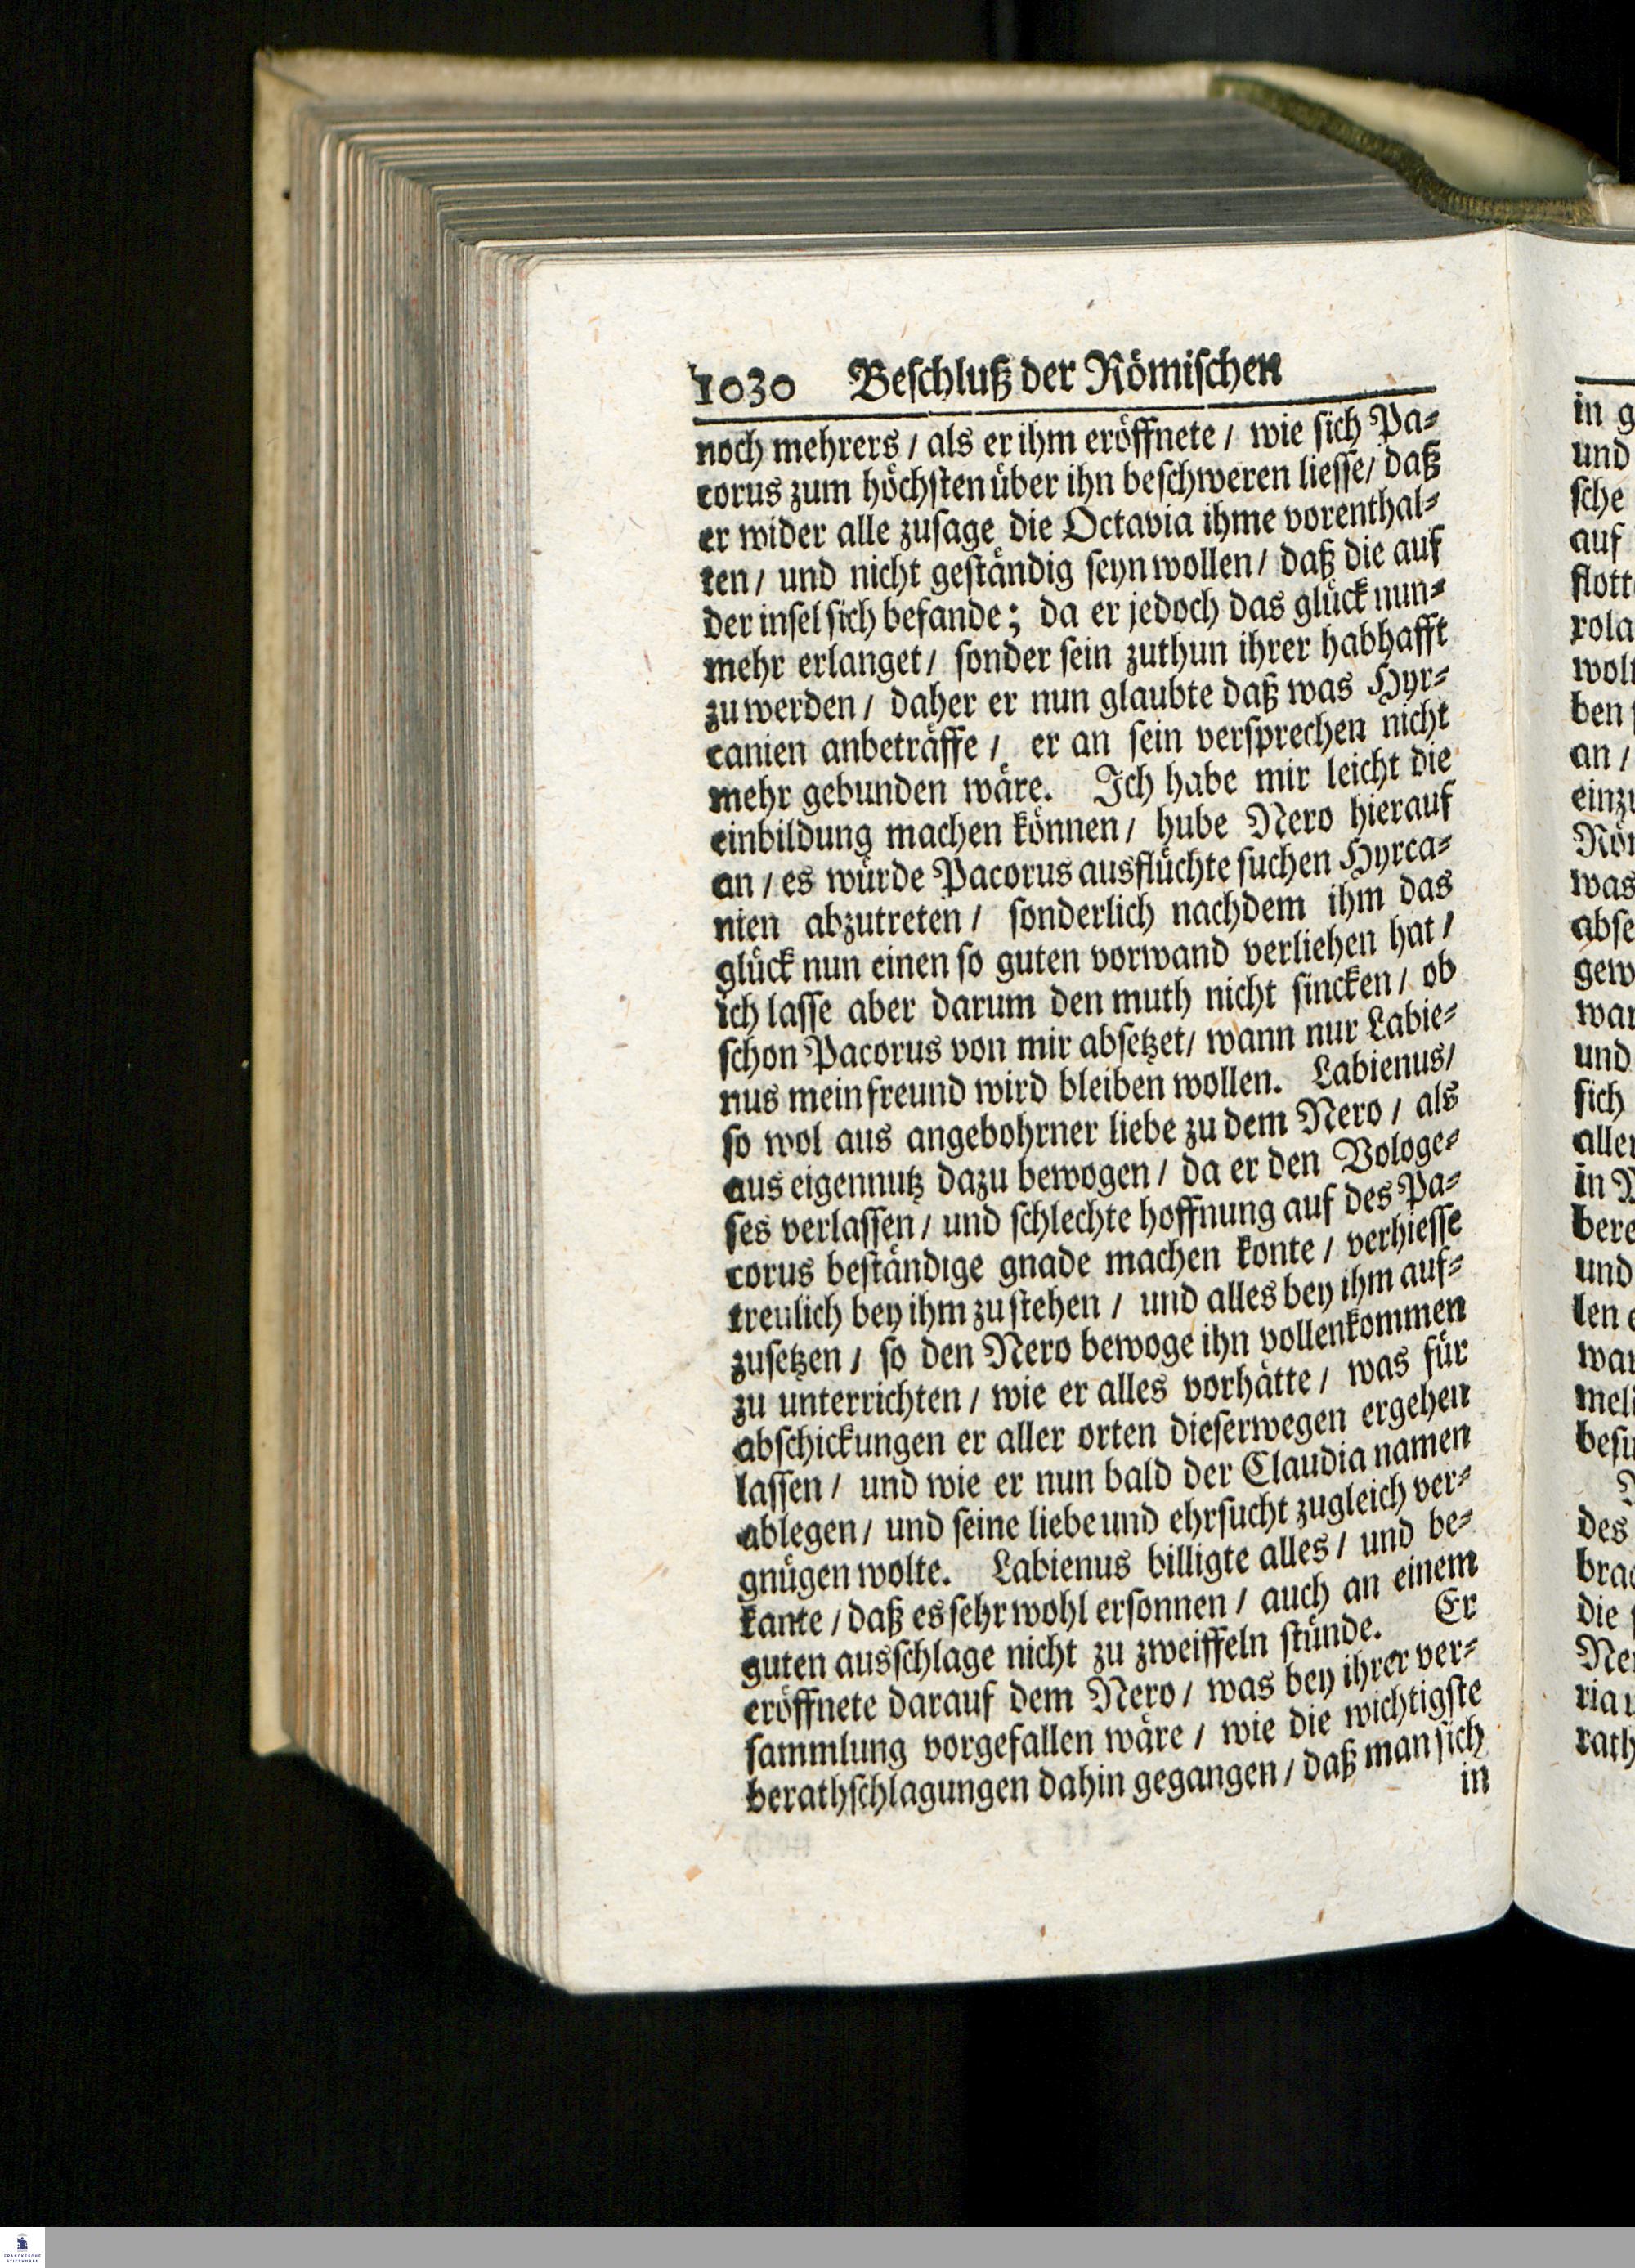 1030 Beſchluß der Römiſchen
noch mehrers / als er ihm eröffnete / wie ſich Pa-
corus zum höchſten über ihn beſchweren lieſſe / daß
er wider alle zuſage die Octavia ihme vorenthal-
ten / und nicht geſtändig ſeyn wollen / daß die auf
der inſel ſich befande; da er jedoch das glück nun-
mehr erlanget / ſonder ſein zuthun ihrer habhafft
zu werden / daher er nun glaubte daß was Hyr-
canien anbeträffe / er an ſein verſprechen nicht
mehr gebunden wäre. Ich habe mir leicht die
einbildung machen können / hube Nero hierauf
an / es würde Pacorus ausflüchte ſuchen Hyrca-
nien abzutreten / ſonderlich nachdem ihm das
glück nun einen ſo guten vorwand verliehen hat /
ich laſſe aber darum den muth nicht ſincken / ob
ſchon Pacorus von mir abſetzet / wann nur Labie-
nus mein freund wird bleiben wollen. Labienus /
ſo wol aus angebohrner liebe zu dem Nero / als
aus eigennutz dazu bewogen / da er den Vologe-
ſes verlaſſen / und ſchlechte hoffnung auf des Pa-
corus beſtändige gnade machen konte / verhieſſe
treulich bey ihm zu ſtehen / und alles bey ihm auf-
zuſetzen / ſo den Nero bewoge ihn vollenkommen
zu unterrichten / wie er alles vorhätte / was für
abſchickungen er aller orten dieſerwegen ergehen
laſſen / und wie er nun bald der Claudia namen
ablegen / und ſeine liebe und ehrſucht zugleich ver-
gnügen wolte. Labienus billigte alles / und be-
kante / daß es ſehr wohl erſonnen / auch an einem
guten ausſchlage nicht zu zweiffeln ſtünde. Er
eröffnete darauf dem Nero / was bey ihrer ver-
ſammlung vorgefallen wäre / wie die wichtigſte
berathſchlagungen dahin gegangen / daß man ſich
in
in g
und
ſche
auf
flott
rola
wolt
ben
an /
einzu
Röm
was
abſe
gew
war
und
ſich
aller
in N
bere
und
len e
war
meli
beſu
des
brac
die
Ner
ria u
rath
FRANCKESCHE
STIFTUNGEN